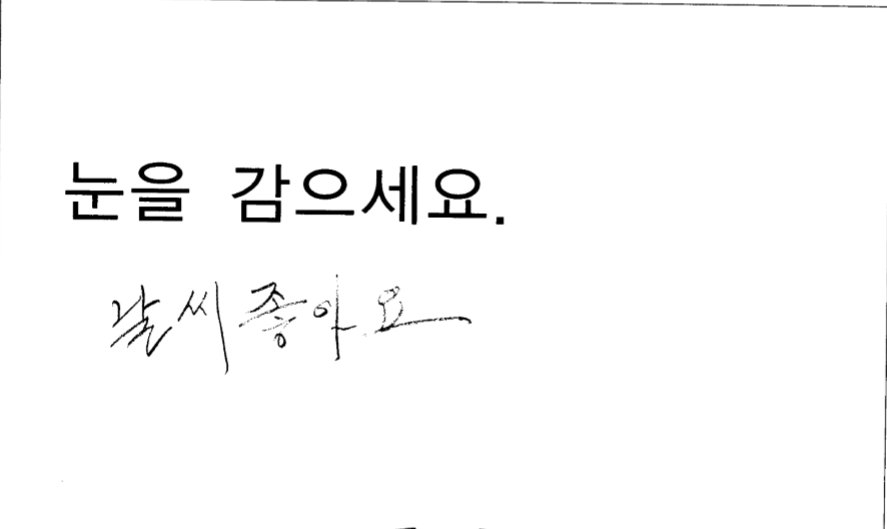 눈을 감으세요.
날씨 좋아요